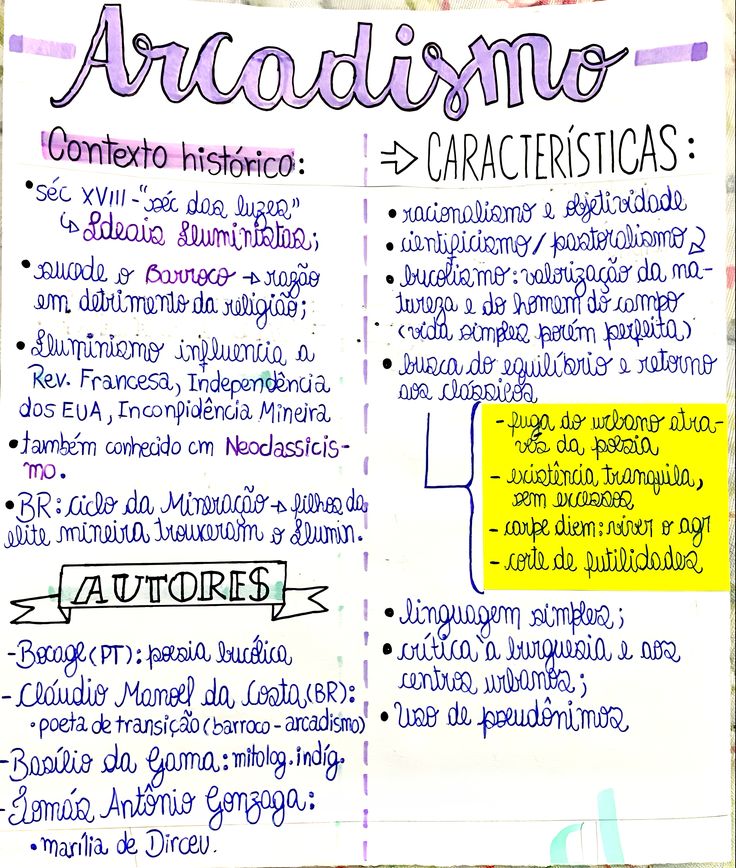 Arcadismo
Contexto histórico:
• séc XVIII - "séc das luzes"
↳ Ideais Iluministas;
• sucede o Barroco → razão
em detrimento da religião;
• Iluminismo influencia a
Rev. Francesa, Independência
dos EUA, Inconfidência Mineira
• também conhecido cm Neoclassicis-
mo.
• BR: ciclo da Mineração → filhos da
elite mineira trouxeram o Ilumin.
AUTORES
- Bocage (PT): poesia bucólica
- Cláudio Manoel da Costa (BR):
• poeta de transição (barroco - arcadismo)
- Basílio da Gama: mitolog. indíg.
- Tomás Antônio Gonzaga:
• marília de Dirceu.
⇒ CARACTERÍSTICAS:
• racionalismo e objetividade
• cientificismo / pastoralismo
• bucolismo: valorização da na-
tureza e do homem do campo
(vida simples porém perfeita)
• busca do equilíbrio e retorno
aos clássicos
- fuga do urbano atra-
vés da poesia
- existência tranquila,
sem excessos
- carpe diem: viver o agr
- corte de futilidades
• linguagem simples;
• crítica à burguesia e aos
centros urbanos;
• uso de pseudônimos